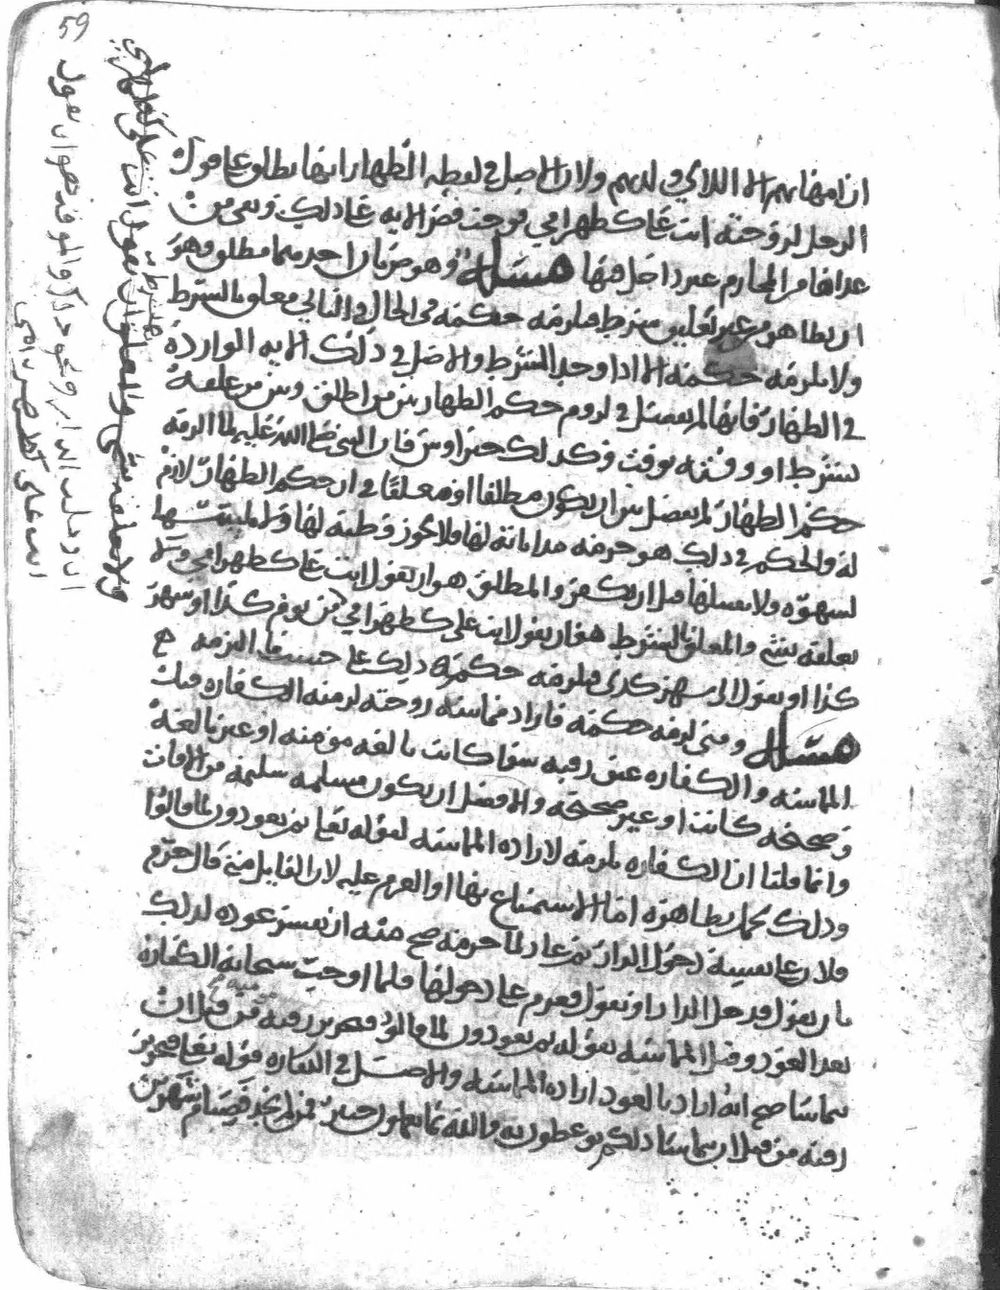 ان امهاتهم الا اللائي ولدنهم ولان الاصل في لفظه الظهار انها تطلق على قول
الرجل لزوجته انت علي كظهر امي فوجب قصر الايه على ذلك وبقي من
عداها من المحارم غير داخل فيها مسئله وهو ضربان احدهما مطلق وهو
ان يظاهر من غير تعليق بشرط فيلزمه حكمه في الحال والثاني معلق بالشرط
ولا يلزمه حكمه الا اذا وجد الشرط والاصل في ذلك الايه الوارده
في الظهار فانها لم تفصل في لزوم حكم الظهار بين من اطلق وبين من علقه
بشرط او وقته بوقت وكذلك خبر اوس فان النبي صلى الله عليه لما الزمه
حكم الظهار لم يفصل بين ان يكون مطلقا او معلقا في ان حكم الظهار لازم
له والحكم في ذلك هو حرمه مداناته لها فلا يجوز وطئه لها ولا لمسها
لشهوه ولا تقبيلها قبل ان يكفر والمطلق هو ان يقول انت علي كظهر امي ولا
يعلقه بشي والمعلق بالشرط هو ان يقول انت علي كظهر امي من يوم كذا او شهر
كذا او يقول الى شهر كذى فيلزمه حكم ذلك على حسب ما الزمه
مسئله ومتى لزمه حكمه فاراد مماسه زوجته لزمته الكفاره قبل
المماسه والكفاره عتق رقبه سوا كانت بالغه مومنه او غير بالغه
وصحيحه كانت او غير صحيحه والافضل ان يكون مسلمه سليمه من الافات
وانما قلنا ان الكفاره تلزمه لاراده المماسه لقوله تعالى ثم يعودون لما قالوا
وذلك يحمل بظاهره اما الاستمتاع بها او العزم عليه لان القايل متى قال حرم
فلان على نفسه دخول الدار ثم عاد لما حرمه صح منه ان يفسر عوده لذلك
بان يقول قد دخل الدار او يقول قد عزم على دخولها فلما اوجب سبحانه الكفاره
بعد العود وقبل المماسه بقوله ثم يعودون لما قالوا فتحرير رقبه من قبل ان
يتماسا صح انه اراد بالعود اراده المماسه والاصل في الكفاره قوله تعالى فتحرير
رقبه من قبل ان يتماسا ذلكم توعظون به والله بما تعملون خبير فمن لم يجد فصيام شهرين